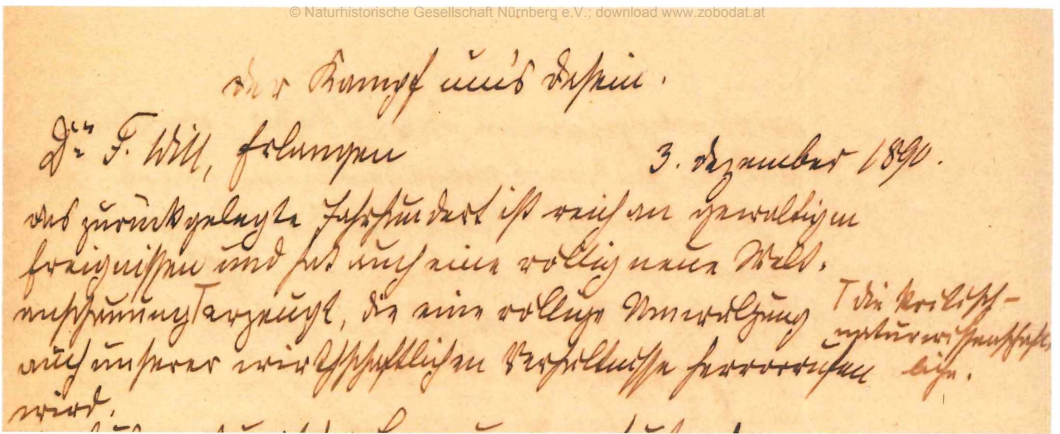 © Naturhistorische Gesellschaft Nürnberg e.V.; download www.zobodat.at
der Kampf um's Dasein.
Dr. F. Will, Erlangen 3. Dezember 1890.
das zurückgelegte Jahrhundert ist reich an gewaltigen
Ereignissen und hat auch eine völlig neue Welt-
anschauung erzeugt, die eine völlige Umwälzung
auch unserer wirthschaftlichen Verhältnisse hervorrufen
wird.
die kritisch-
naturwissenschaft-
liche.